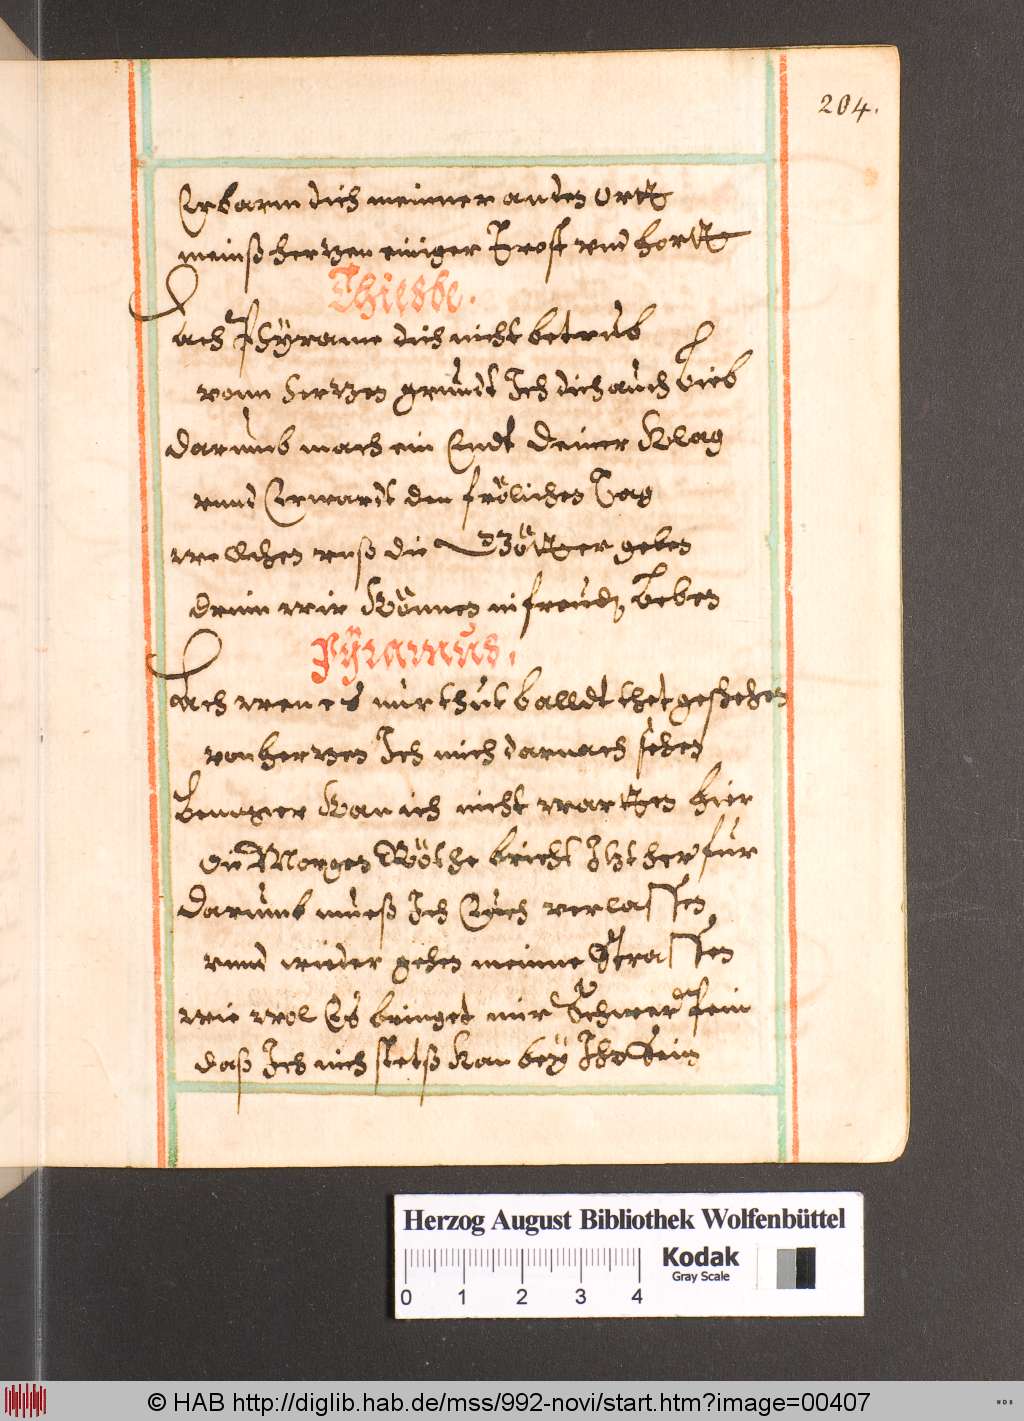 204.
Erbarm dich meinner an den Ortt
meinß hertzen einiger Trost vnd hortt
Thiesbe.
ach Phÿrame dich nicht betrüb
vonn Hertzen grundt Ich dich auch Lieb
darumb mach ein Endt deiner Klag
vnnd Erwardt den frölichen Tag
welchen vnß die Götter geben
drinn wir Können in freudt Leben
Pÿramus.
ach wen es nur thüt balldt thet geschehen
von hertzen Ich mich darnach sehen
Lenger Kan ich nicht wartten hier
die Morgen Röthe bricht Itzt herfür
darumb mueß Ich Euch verlassen
vnnd wieder gehen meinne Strassen
wie wol Es bringet mir Schwer Pein
daß Ich nich stetß kan beÿ Ihr Sein
Herzog August Bibliothek Wolfenbüttel
Kodak
Gray Scale
0 1 2 3 4
© HAB http://diglib.hab.de/mss/992-novi/start.htm?image=00407